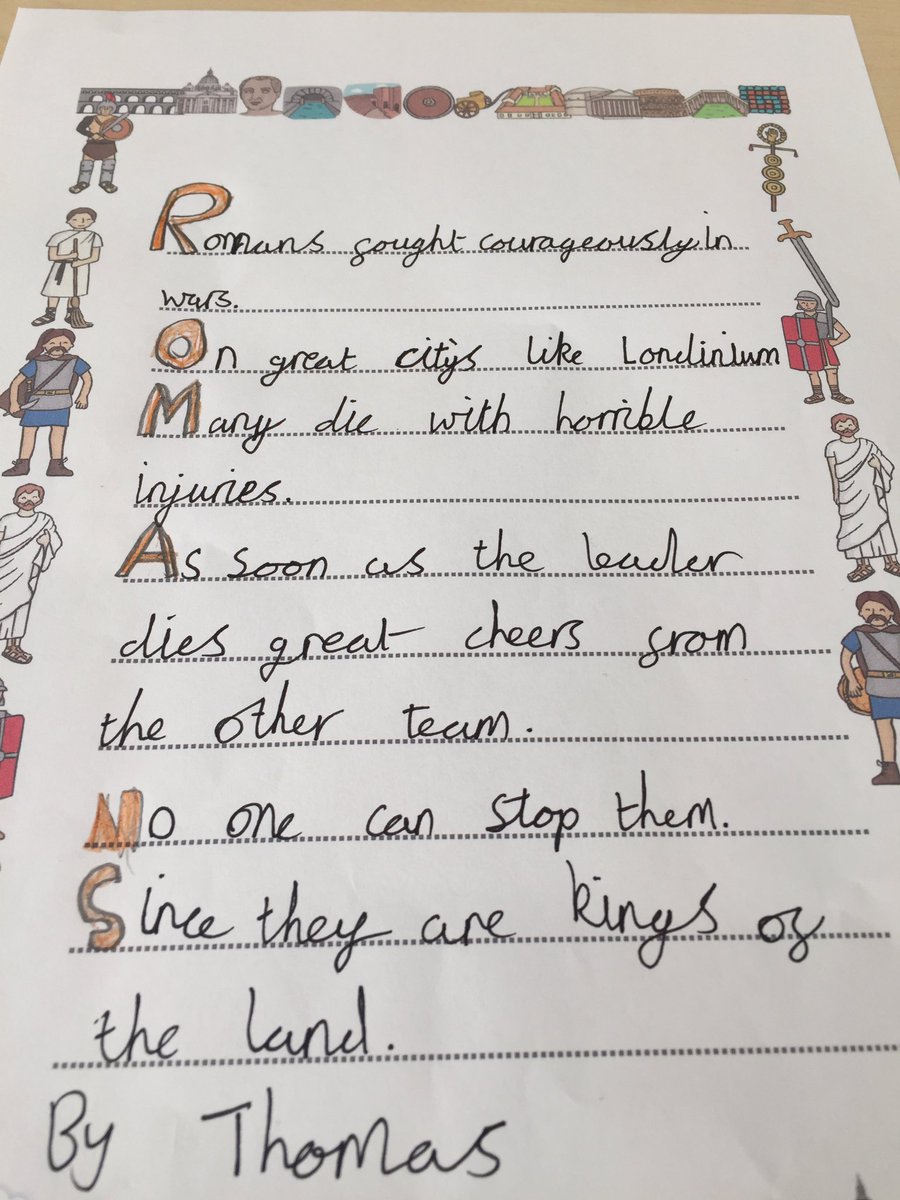 Romans fought courageously in
wars.
On great citys like Londinium
Many die with horrible
injuries.
As soon as the leader
dies great cheers from
the other team.
No one can stop them.
Since they are kings of
the land.
By Thomas